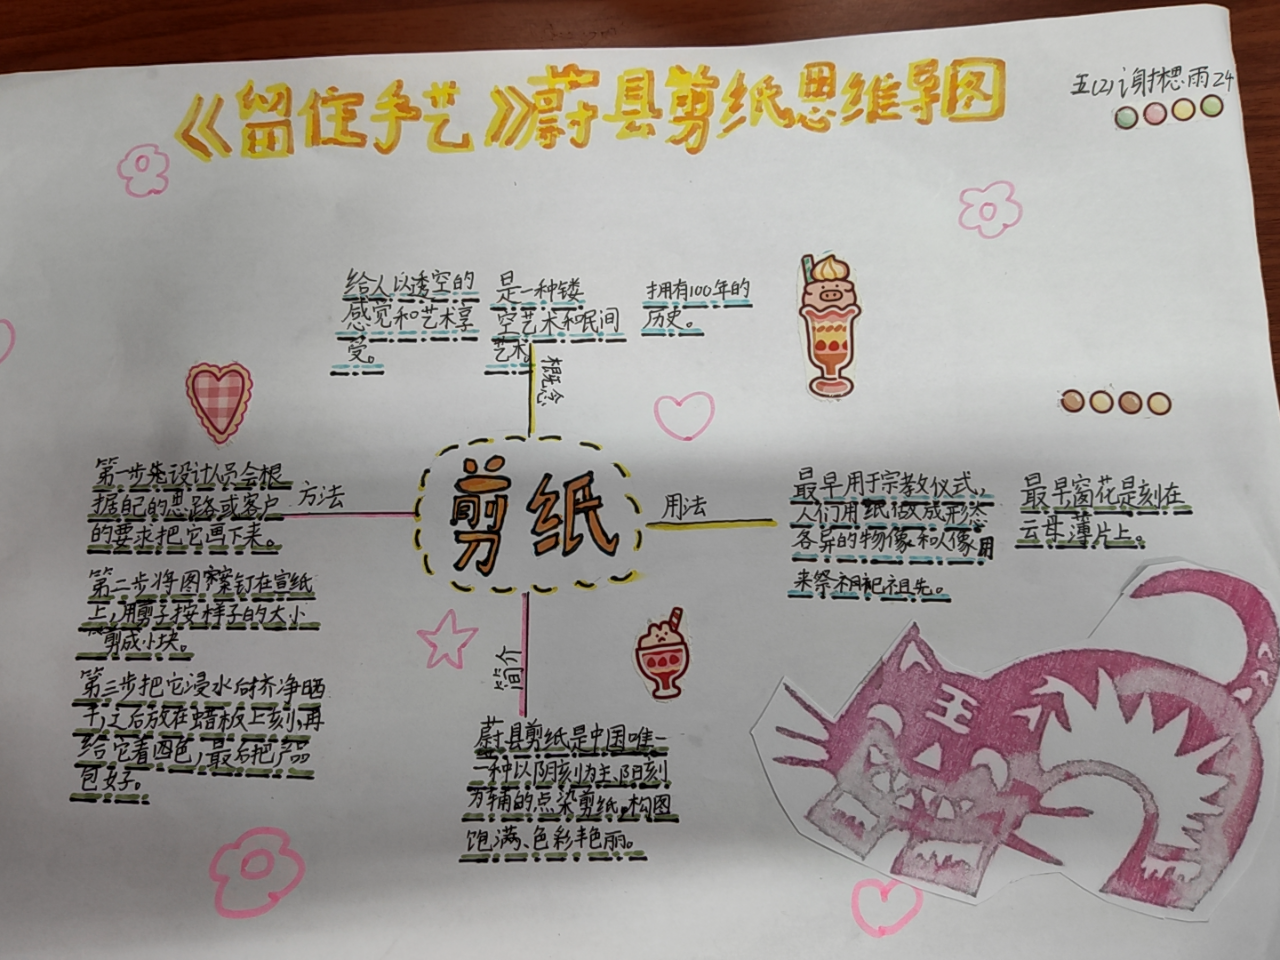 《留住手艺》蔚县剪纸思维导图
五(2)谢梦思雨24
给人以透空的
感觉和艺术享
受。
是一种镂
空艺术和民间
艺术。
拥有100年的
历史。
概念
第一步先设计人员会根
据自己的思路或客户
的要求把它画下来。
方法
第二步将图案钉在宣纸
上,用剪子按样子的大小
剪成小块。
第三步把它浸水后挤净晒
干,之后放在蜡板上刻,再
给它着四色,最后把产品
包好。
剪纸
用法
最早用于宗教仪式,
人们用纸做成形态
各异的物像和人像用
来祭祀祖先。
最早窗花是刻在
云母薄片上。
简介
蔚县剪纸是中国唯一
一种以阴刻为主、阳刻
为辅的点染剪纸,构图
饱满、色彩艳丽。
王